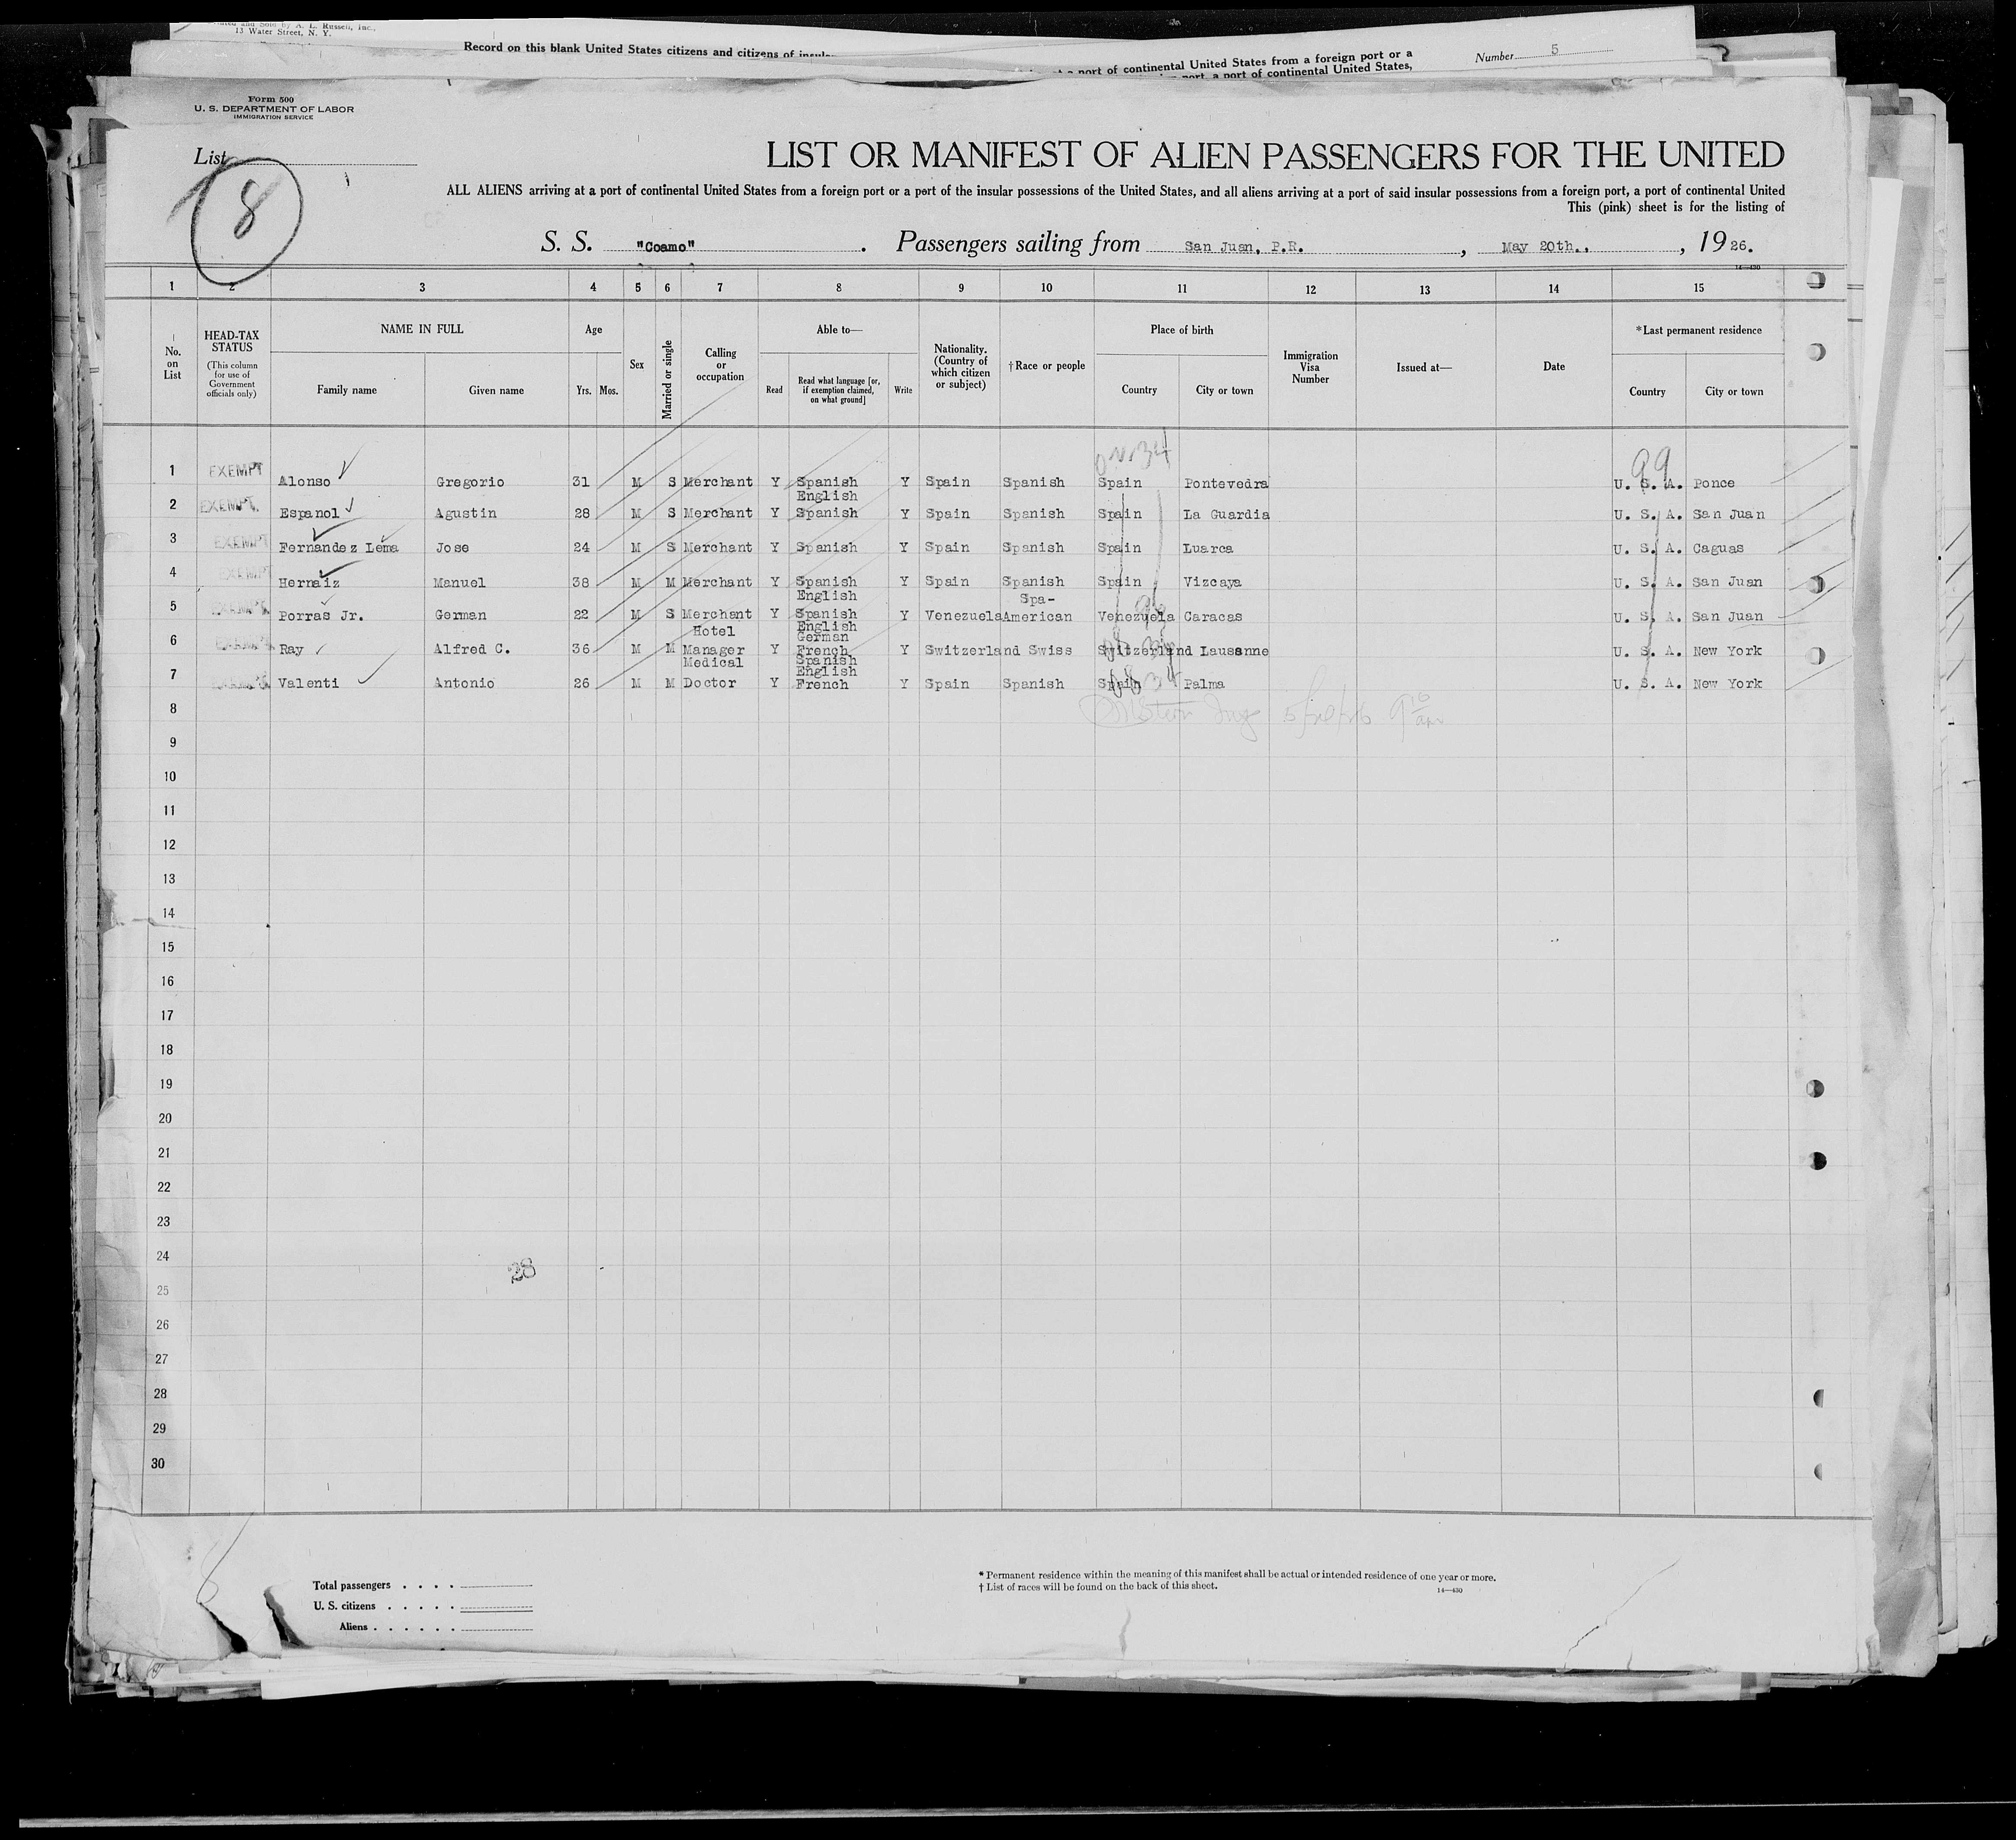 13 Water Street, N. Y.
Record on this blank United States citizens and citizens of
port of continental United States from a foreign port or a
port, a port of continental United States,
Number 5
Form 500
U. S. DEPARTMENT OF LABOR
IMMIGRATION SERVICE
List
8
LIST OR MANIFEST OF ALIEN PASSENGERS FOR THE UNITED
ALL ALIENS arriving at a port of continental United States from a foreign port or a port of the insular possessions of the United States, and all aliens arriving at a port of said insular possessions from a foreign port, a port of continental United
This (pink) sheet is for the listing of
S. S. "Coamo". Passengers sailing from San Juan, P.R., May 20th., 1926.
14—430
1 2 3 4 5 6 7 8 9 10 11 12 13 14 15
No. on List
HEAD-TAX STATUS
(This column for use of Government officials only)
NAME IN FULL
Family name Given name
Age
Yrs. Mos.
Sex
Married or single
Calling or occupation
Able to—
Read
Read what language [or, if exemption claimed, on what ground]
Write
Nationality. (Country of which citizen or subject)
†Race or people
Place of birth
Country City or town
Immigration Visa Number
Issued at—
Date
*Last permanent residence
Country City or town
99
1 EXEMPT Alonso Gregorio 31 M S Merchant Y Spanish Y Spain Spanish Spain Pontevedra U. S. A. Ponce
English
2 EXEMPT. Espanol Agustin 28 M S Merchant Y Spanish Y Spain Spanish Spain La Guardia U. S. A. San Juan
3 EXEMPT Fernandez Lema Jose 24 M S Merchant Y Spanish Y Spain Spanish Spain Luarca U. S. A. Caguas
4 EXEMPT Hernaiz Manuel 38 M M Merchant Y Spanish Y Spain Spanish Spain Vizcaya U. S. A. San Juan
English Spa-
5 EXEMPT Porras Jr. German 22 M S Merchant Y Spanish Y Venezuela American Venezuela Caracas U. S. A. San Juan
Hotel English
German
6 EXEMPT Ray Alfred C. 36 M M Manager Y French Y Switzerland Swiss Switzerland Lausanne U. S. A. New York
Medical Spanish
English
7 EXEMPT Valenti Antonio 26 M M Doctor Y French Y Spain Spanish Spain Palma U. S. A. New York
8
9
10
11
12
13
14
15
16
17
18
19
20
21
22
23
24
28
25
26
27
28
29
30
Total passengers . . . .
U. S. citizens . . . . .
Aliens . . . . . .
* Permanent residence within the meaning of this manifest shall be actual or intended residence of one year or more.
† List of races will be found on the back of this sheet.
14—430